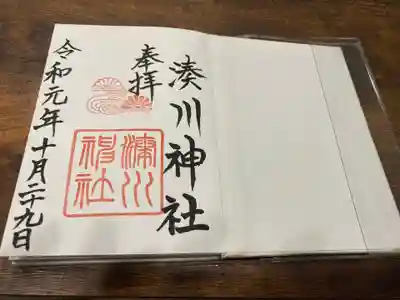 奉拝
湊川神社
湊川神社
令和元年十月二十九日